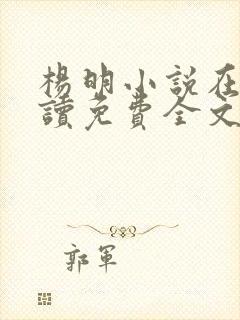 楊明小説在
讀免費全文
郭軍